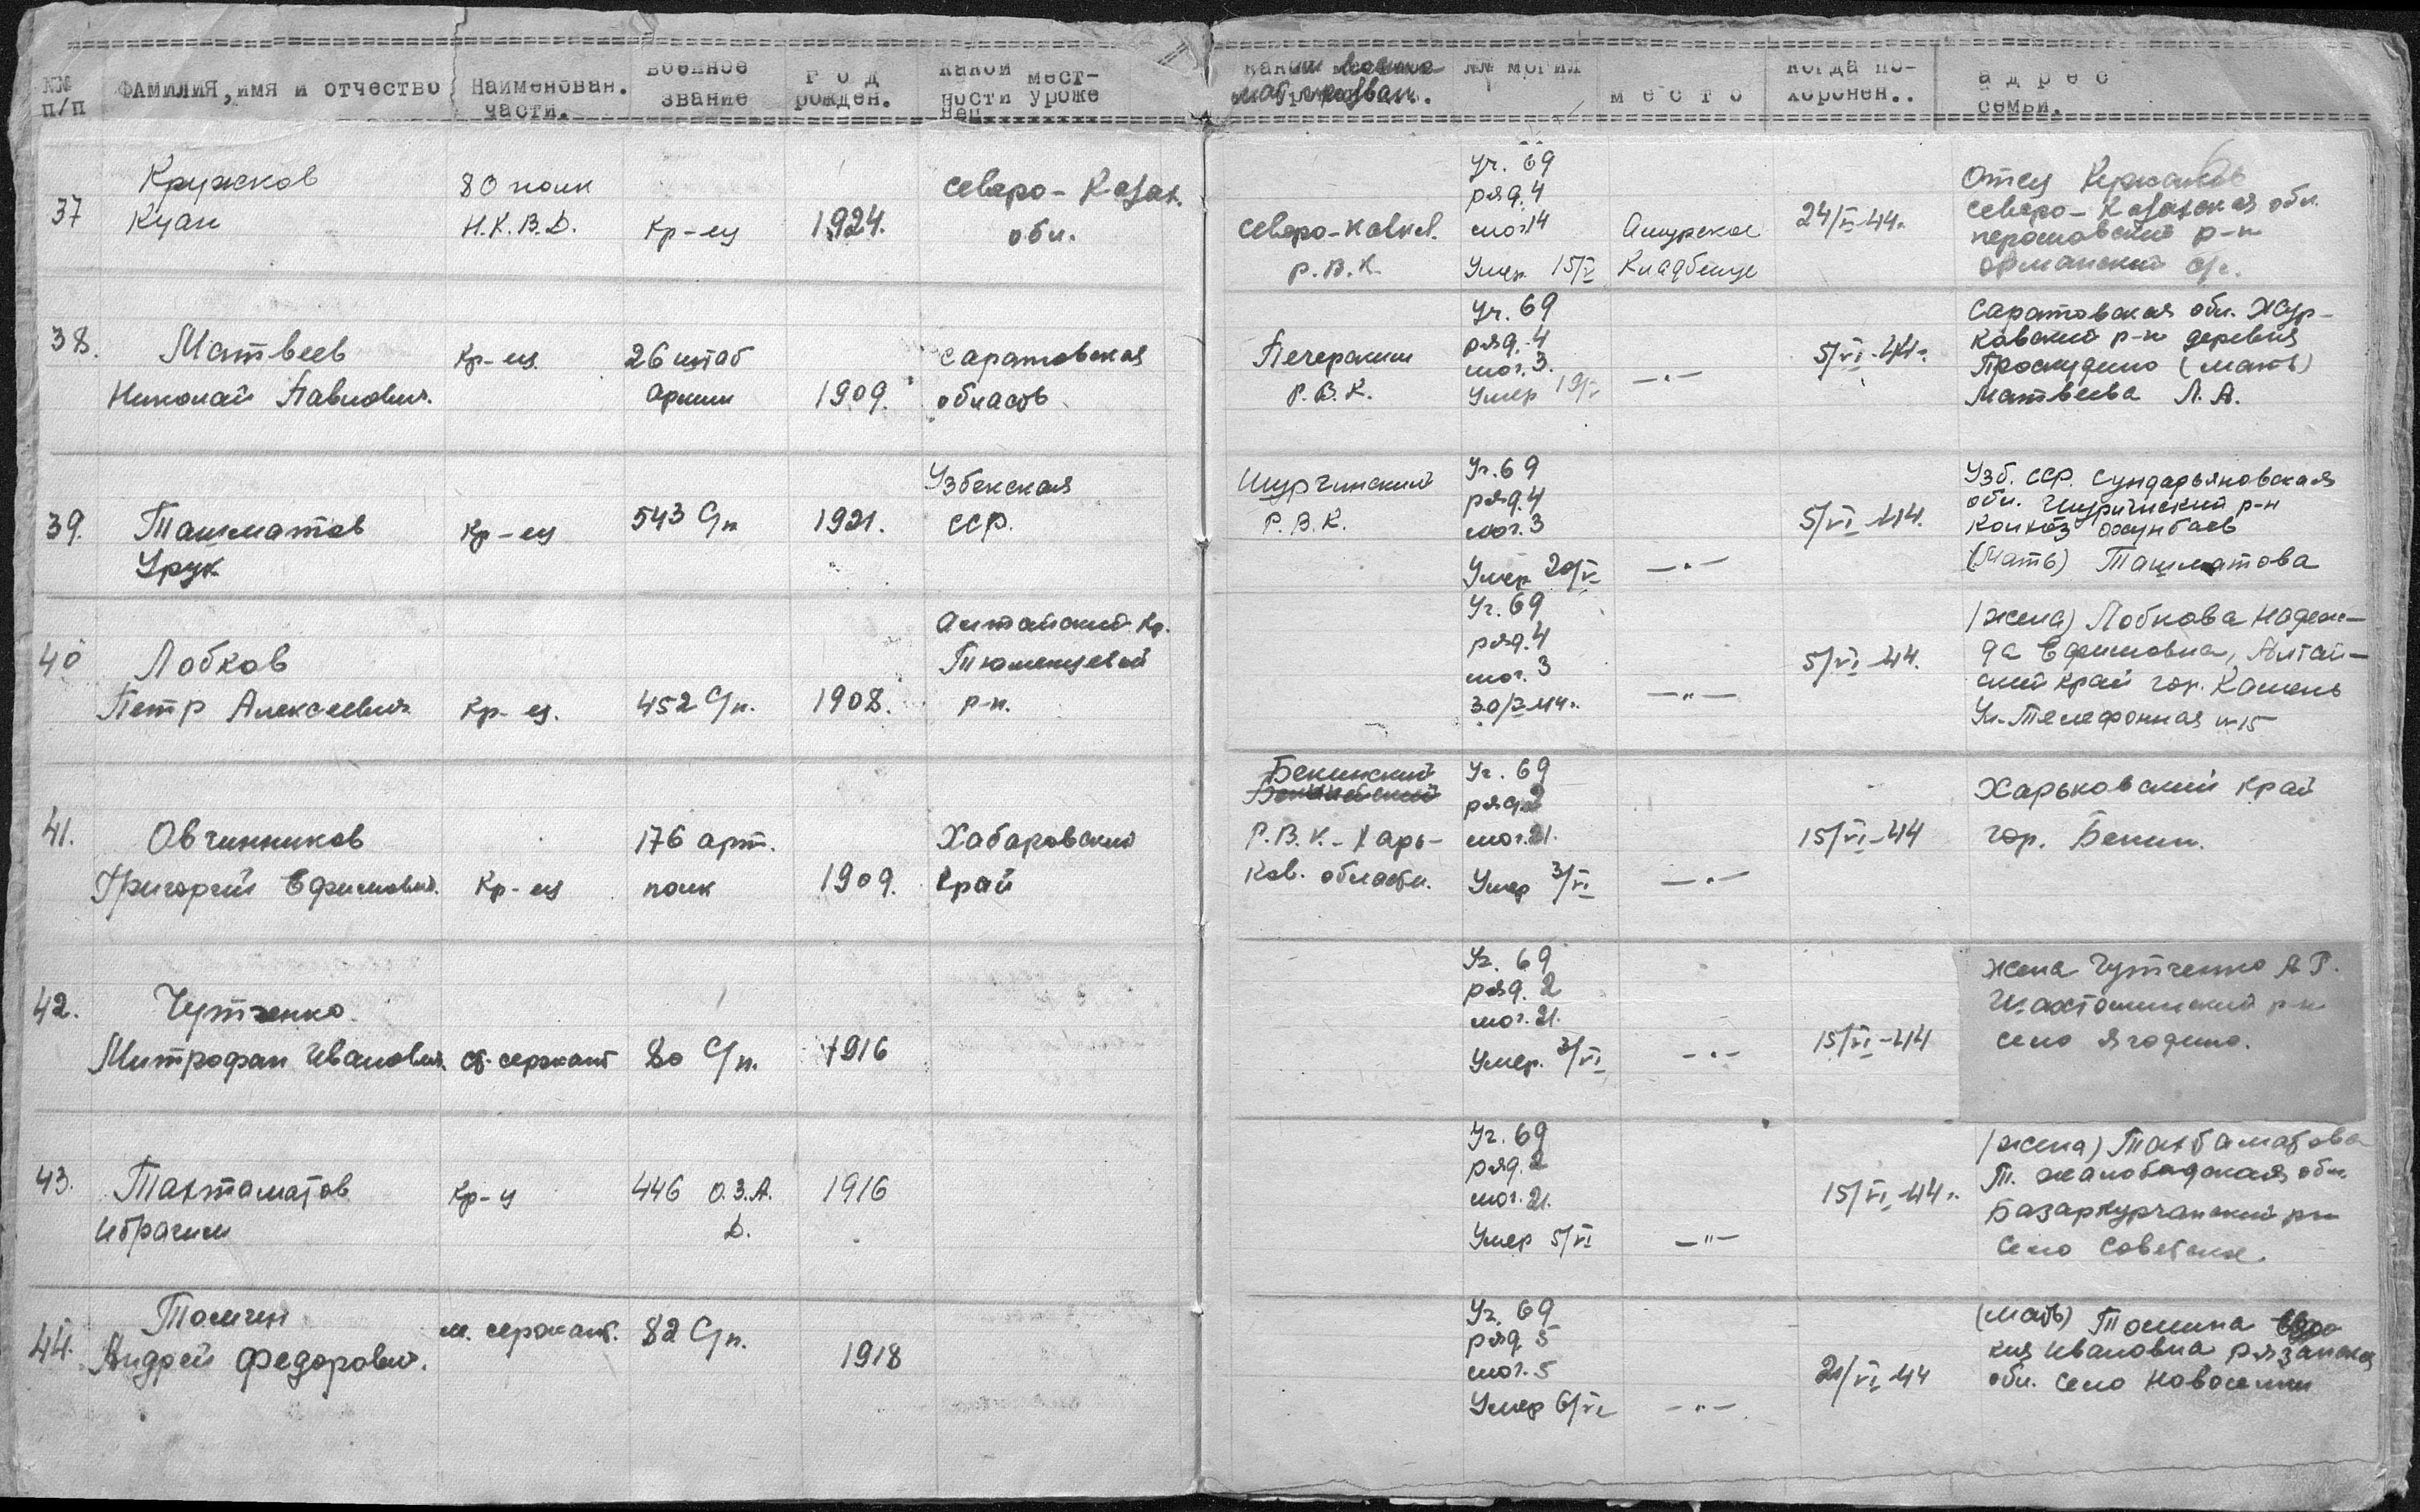 №№ п/п
ФАМИЛИЯ, имя и отчество
Наименован. части.
военное звание
г о д рожден.
какой мест-
ности уроже
нец
каким
призван.
№№ могил
м е с т о
когда по-
хоронен..
а д р е с
семьи.
37
Кружков
Куан
80 полк
Н.К.В.Д.
Кр-ец
1924.
Северо-Казах.
обл.
Северо-
Р.В.К.
Уч. 69
ряд. 4
мог. 14
Умер 15/V
Амурское
Кладбище
24/V-44.
Отец
Северо-Казахская обл.
р-н
38.
Матвеев
Николай Павлович.
Кр-ец.
26 штаб
армии
1909.
Саратовская
область
Печерским
Р.В.К.
Уч. 69
ряд. 4
мог. 3.
Умер 19/V
—"—
5/VI-44.
Саратовская обл. Жур-
кавский р-н деревня
Проскудино (мать)
Матвеева Л. А.
39.
Ташматов
Урук
Кр-ец
543 С/п
1921.
Узбекская
ССР.
Шурчинский
Р.В.К.
Уч. 69
ряд. 4
мог. 3
Умер 20/V
—"—
5/VI 44.
Узб. ССР. Сундарьяновская
обл. Шурчинский р-н
Колхоз Охунбаев
(Мать) Ташматова
40
Лобков
Петр Алексеевич
Кр-ец.
452 С/п.
1908.
Алтайский Кр.
Тюменцевой
р-н.
Уч. 69
ряд. 4
мог. 3
30/V 44.
—"—
5/VI 44.
(жена) Лобкова Надеж-
да Ефимовна, Алтай-
ский край гор. Камень
Ул. Телефонная №15
41.
Овчинников
Григорий Ефимович.
Кр-ец
176 арт.
полк
1909.
Хабаровский
край
Бекинский
Р.В.К. Харь-
ков. области.
Уч. 69
ряд. 2
мог. 21.
Умер 3/VI
—"—
15/VI-44
Харьковский край
гор. Бекин.
42.
Чутченко
Митрофан Иванович
ст. сержант
80 С/п.
1916
Уч. 69
ряд. 2
мог. 21.
Умер. 3/VI
—"—
15/VI-44
жена Чутченко А Г.
р-н
село Ягодино.
43.
Тахтаматов
Ибрагим
Кр-ц
446 О.З.А.
Д.
1916
Уч. 69
ряд. 2
мог. 21.
Умер 5/VI
—"—
15/VI-44.
(жена) Тахтаматова
Т. жалобадская обл.
Базаркурчанский рн
село Советское
44.
Томин
Андрей Федорович.
м. сержант.
82 С/п.
1918
Уч. 69
ряд 5
мог. 5
Умер 6/VI
—"—
21/VI 44
(мать) Томина Евдо
кия Ивановна Рязанская
обл. село Новоселки